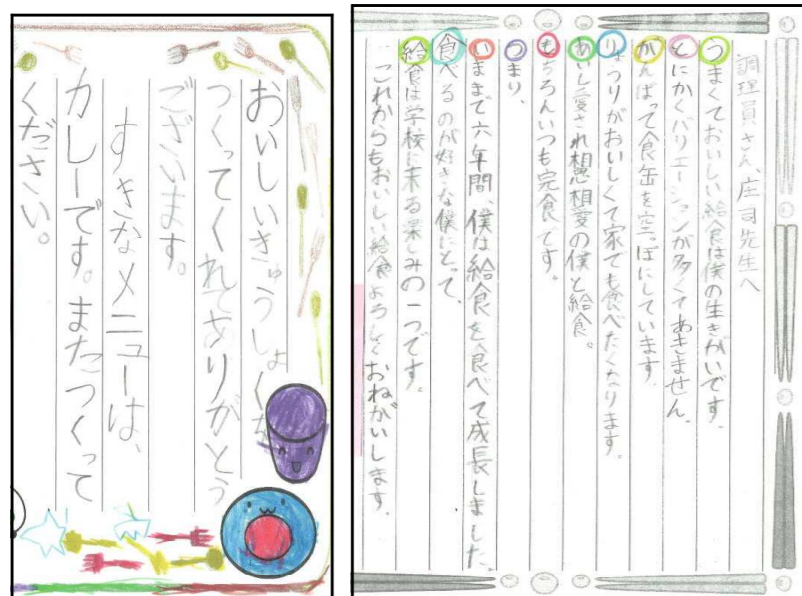 おいしいきゅうしょくを
つくってくれてありがとう
ございます。
すきなメニューは、
カレーです。またつくって
ください。
調理員さん、庄司先生へ
うまくておいしい給食は僕の生きがいです。
とにかくバリエーションが多くてあきません。
がんばって食缶を空っぽにしています。
りょうりがおいしくて家でも食べたくなります。
あいし愛され相思相愛の僕と給食。
もちろんいつも完食です。
つまり、
いままで六年間、僕は給食を食べて成長しました。
食べるのが好きな僕にとって、
給食は学校に来る楽しみの一つです。
これからもおいしい給食よろしくおねがいします。